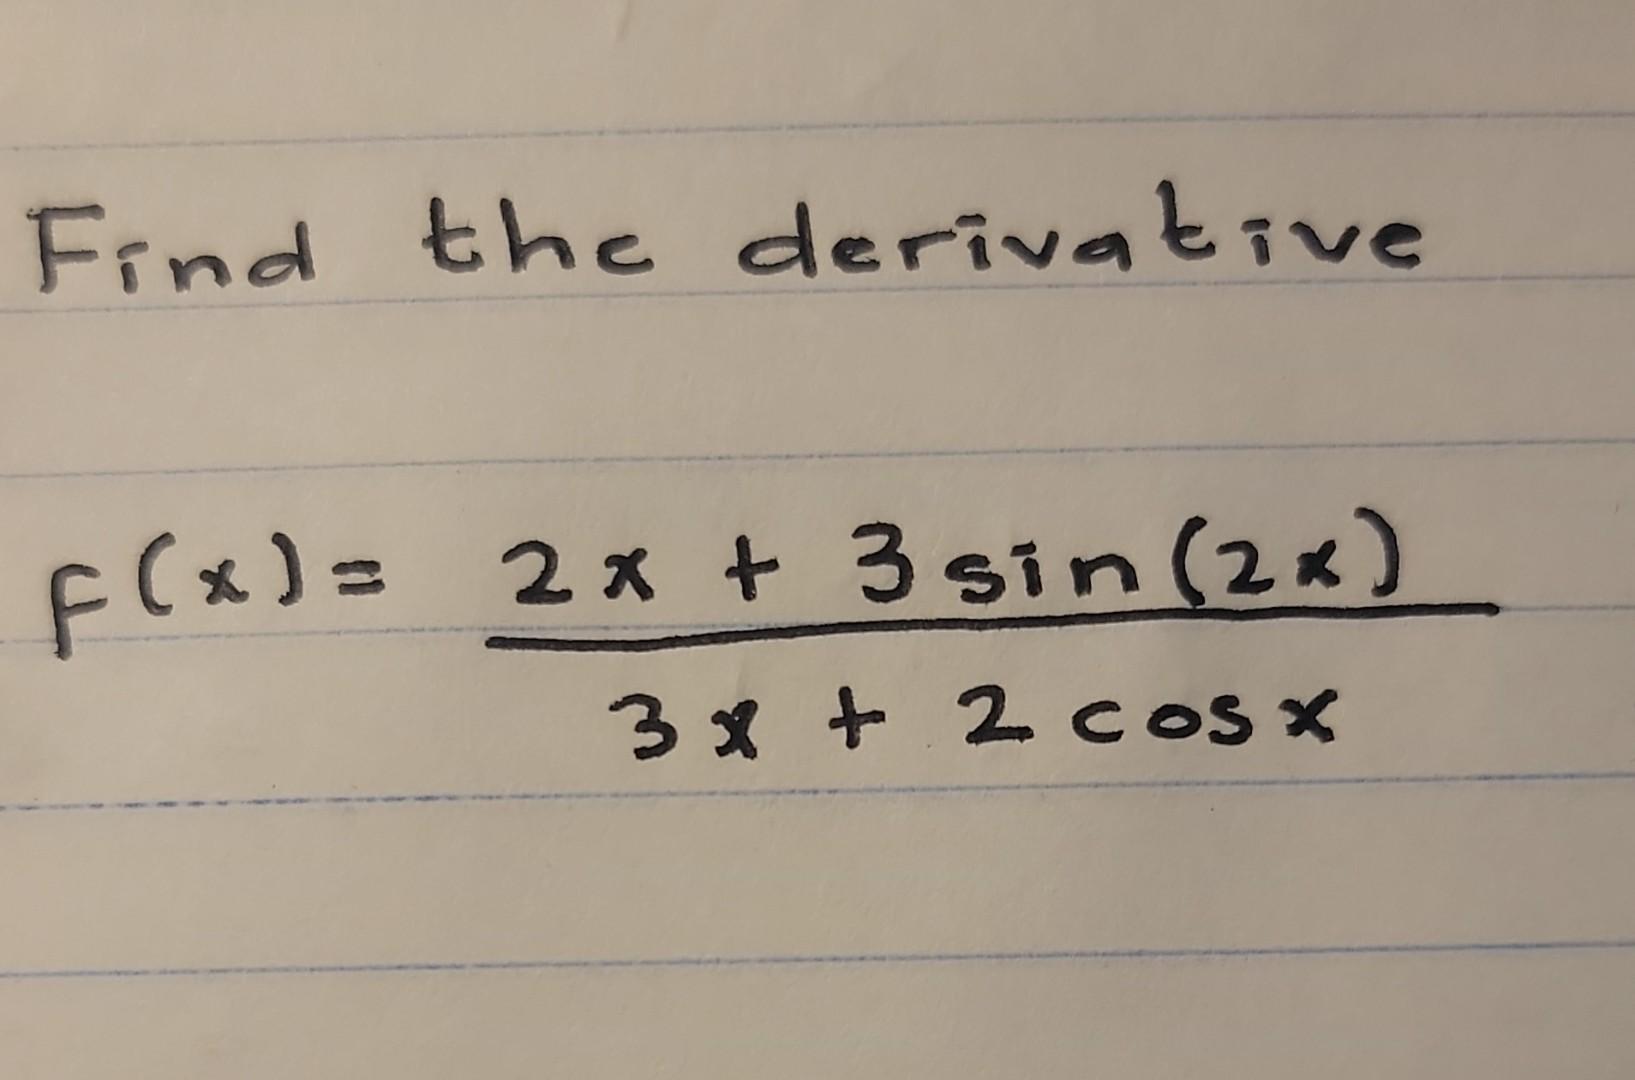 Find the derivative
f(x) = 2x + 3 sin(2x)
3x + 2 cos x